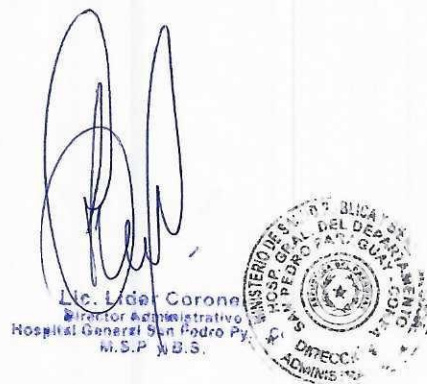 Lic. Lider Corone
Director Administrativo
Hospital General San Pedro Py.
M.S.P. y B.S.
MINISTERIO DE BLICA
HOSP. GRAL. DEL DEPARTAMENTO
SAN PEDRO PARAGUAY
DIRECC
ADMINIS